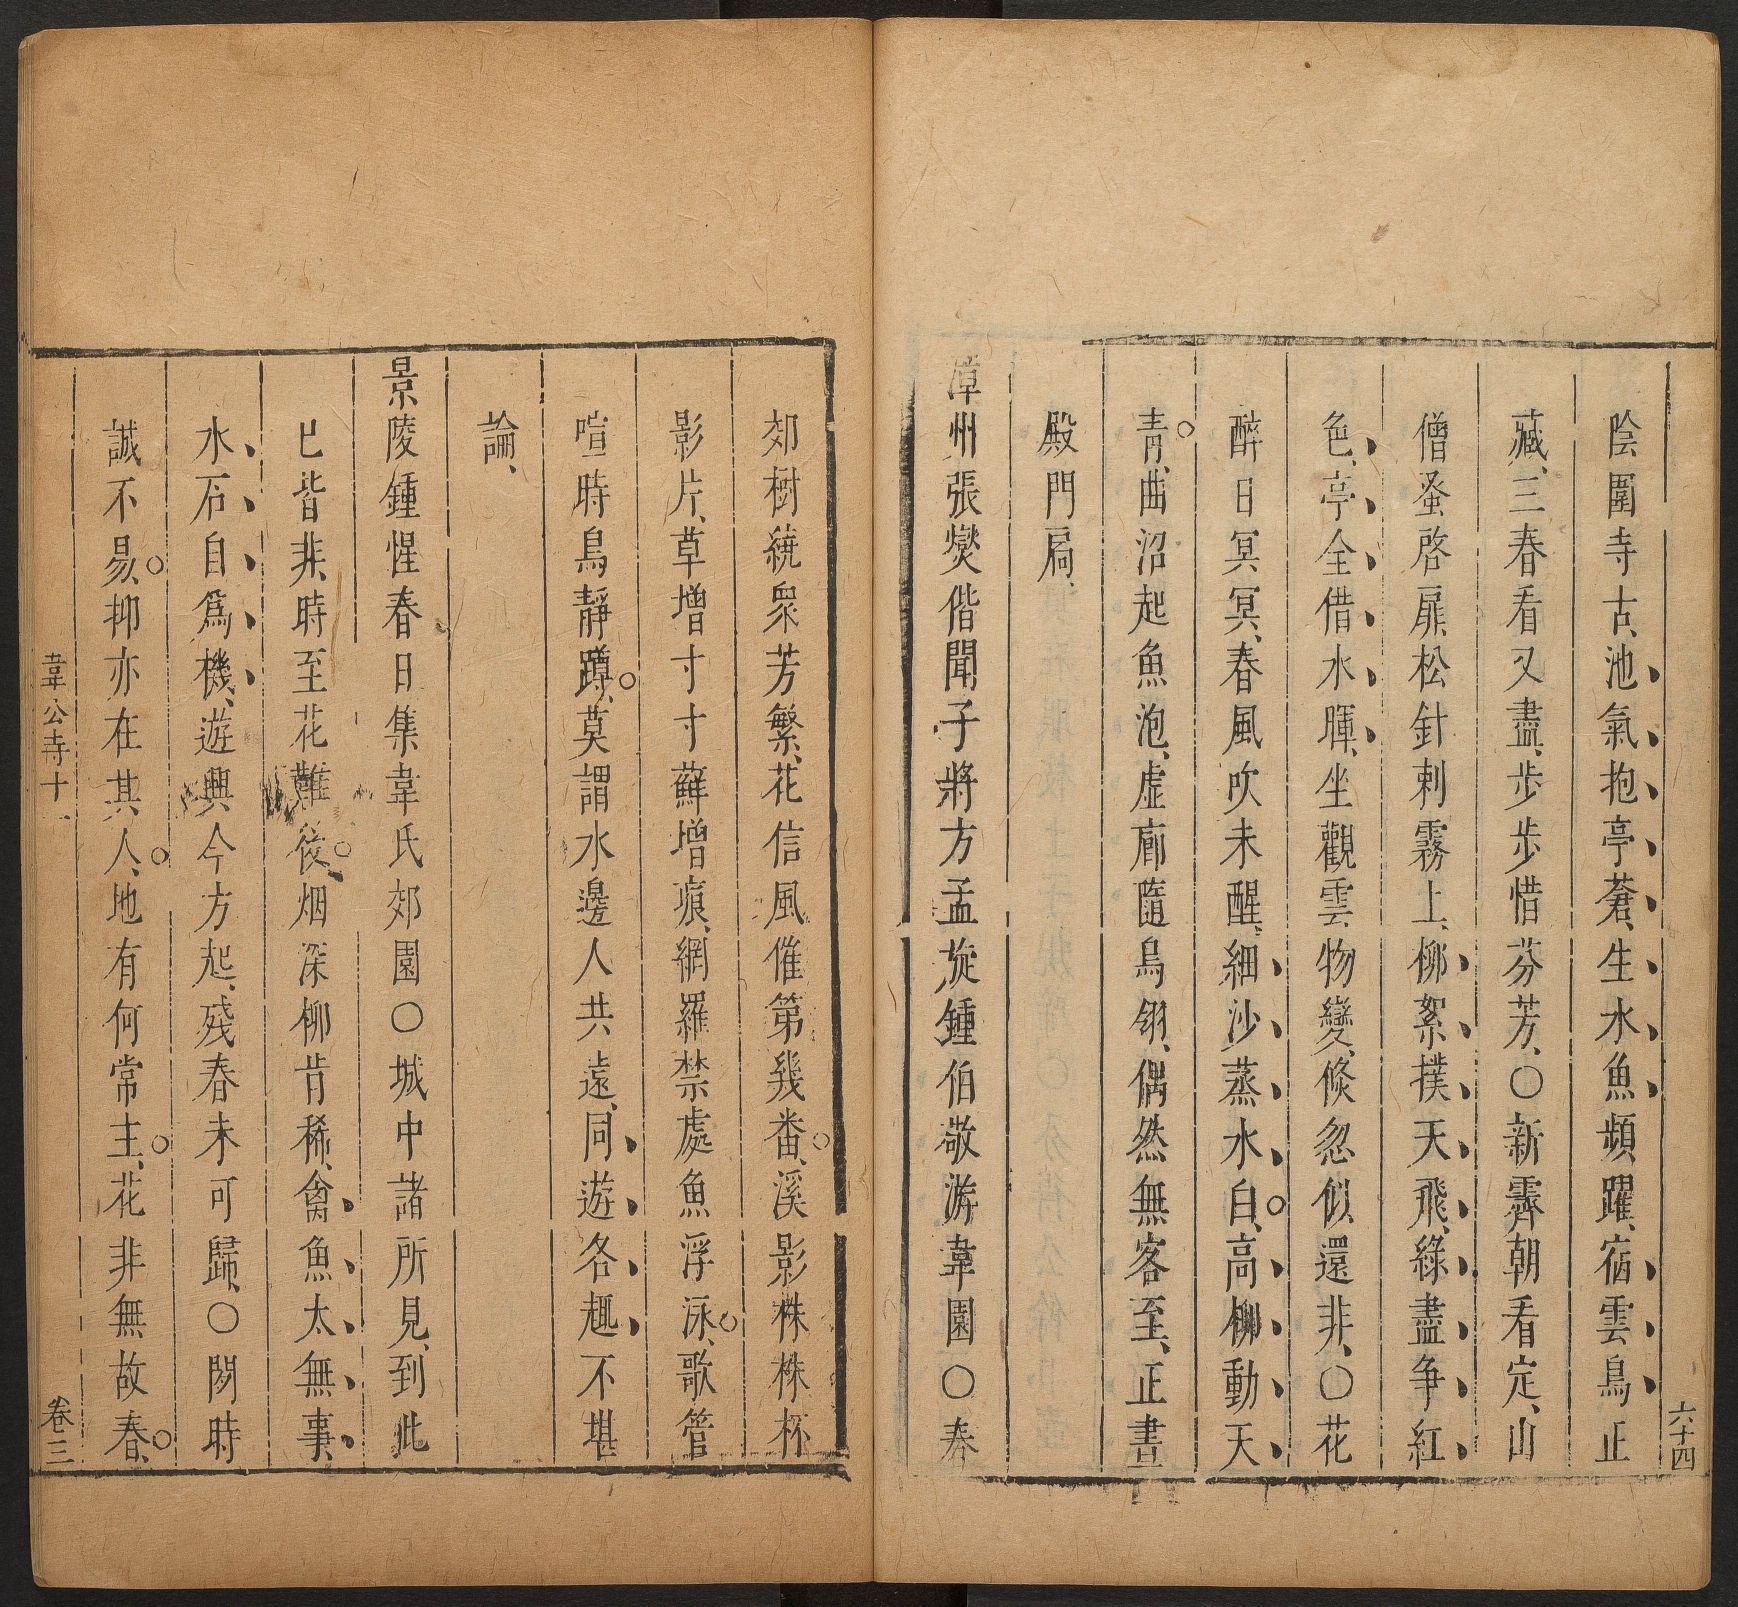 陰圍寺古、池氣抱亭蒼、生水魚頻躍、宿雲鳥正
藏、三春看又盡、步步惜芬芳、○新霽朝看定、山
僧蚤啓扉、松針刺霧上、柳絮撲天飛、綠盡爭紅
色、亭全借水暉、坐觀雲物變、倐忽似還非、○花
醉日冥冥、春風吹未醒、細沙蒸水白、高柳動天
青、曲沼起魚泡、虛廊隨鳥翎、偶然無客至、正晝
殿門扃、
漳州張燮偕聞子將方孟旋鍾伯敬游韋園○春
六十四
郊樹繞衆芳繁、花信風催第幾番、溪影株株杯
影片、草增寸寸蘚增痕、網羅禁處魚浮泳、歌管
喧時鳥靜蹲、莫謂水邊人共遠、同遊各趣不堪
論、
景陵鍾惺春日集韋氏郊園○城中諸所見、到此
已皆非、時至花難後、烟深柳肯稀、禽魚太無事、
水石自爲機、遊興今方起、殘春未可歸、○閉時
誠不易、抑亦在其人、地有何常主、花非無故春、
韋公寺十一
卷三